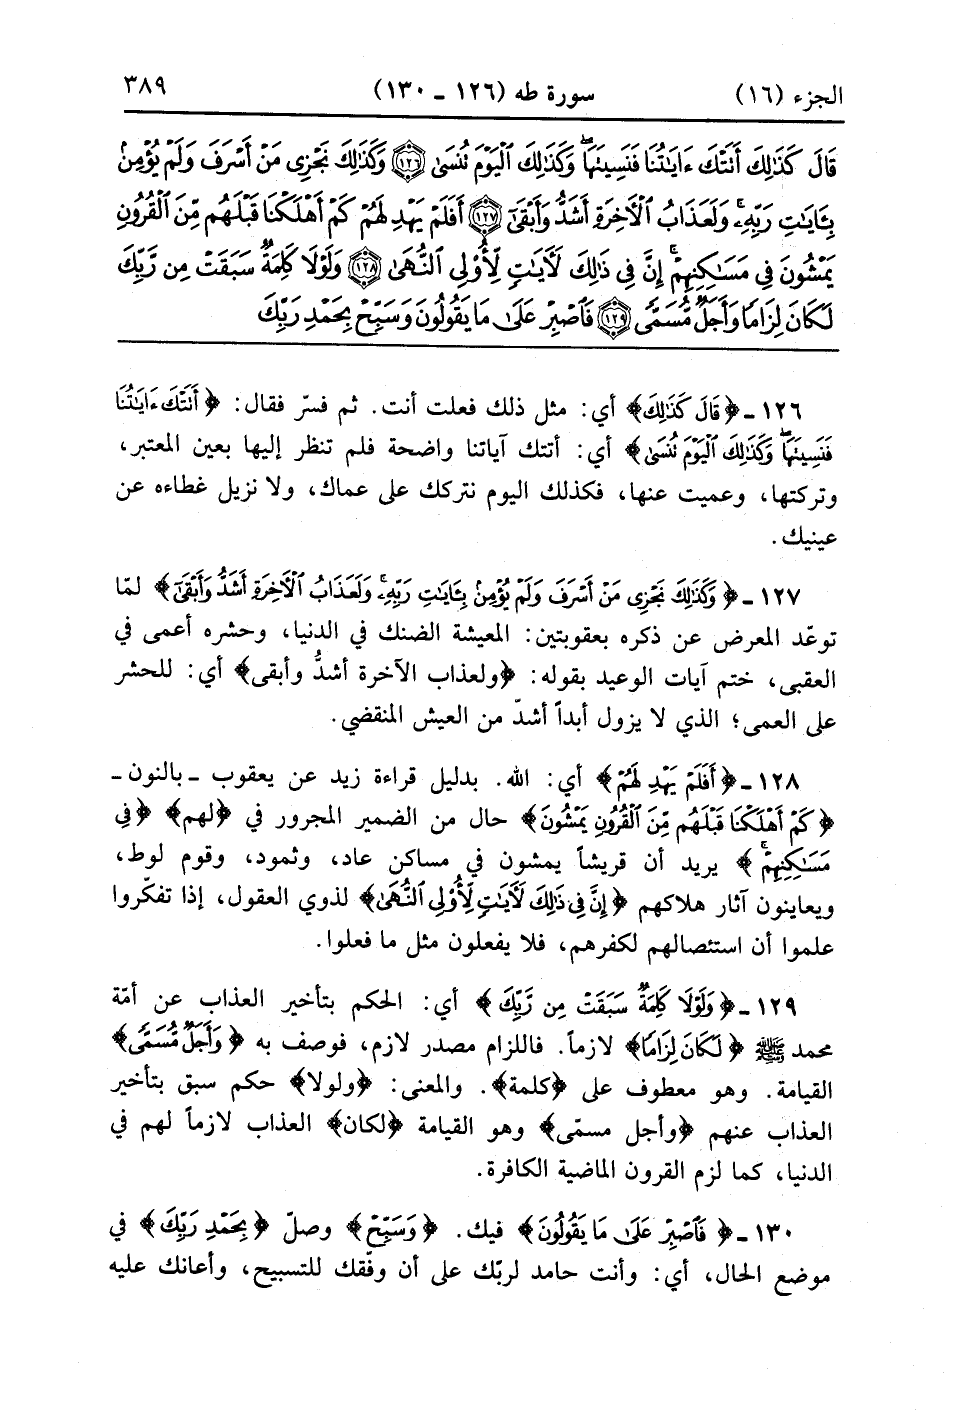 الجزء (١٦) سورة طه (١٢٦ - ١٣٠) ٣٨٩
قَالَ كَذَٰلِكَ أَتَتْكَ ءَايَٰتُنَا فَنَسِيتَهَا ۖ وَكَذَٰلِكَ ٱلْيَوْمَ تُنسَىٰ ﴿١٢٦﴾ وَكَذَٰلِكَ نَجْزِى مَنْ أَسْرَفَ وَلَمْ يُؤْمِنۢ
بِـَٔايَٰتِ رَبِّهِۦ ۚ وَلَعَذَابُ ٱلْأَخِرَةِ أَشَدُّ وَأَبْقَىٰٓ ﴿١٢٧﴾ أَفَلَمْ يَهْدِ لَهُمْ كَمْ أَهْلَكْنَا قَبْلَهُم مِّنَ ٱلْقُرُونِ
يَمْشُونَ فِى مَسَٰكِنِهِمْ ۗ إِنَّ فِى ذَٰلِكَ لَأَيَٰتٍ لِّأُو۟لِى ٱلنُّهَىٰ ﴿١٢٨﴾ وَلَوْلَا كَلِمَةٌ سَبَقَتْ مِن رَّبِّكَ
لَكَانَ لِزَامًا وَأَجَلٌ مُّسَمًّى ﴿١٢٩﴾ فَٱصْبِرْ عَلَىٰ مَا يَقُولُونَ وَسَبِّحْ بِحَمْدِ رَبِّكَ
١٢٦ - ﴿قَالَ كَذَٰلِكَ﴾ أي: مثل ذلك فعلت أنت. ثم فسّر فقال: ﴿أَتَتْكَ ءَايَٰتُنَا
فَنَسِيتَهَا ۖ وَكَذَٰلِكَ ٱلْيَوْمَ تُنسَىٰ﴾ أي: أتتك آياتنا واضحة فلم تنظر إليها بعين المعتبر،
وتركتها، وعميت عنها، فكذلك اليوم نتركك على عماك، ولا نزيل غطاءه عن
عينيك.
١٢٧ - ﴿وَكَذَٰلِكَ نَجْزِى مَنْ أَسْرَفَ وَلَمْ يُؤْمِنۢ بِـَٔايَٰتِ رَبِّهِۦ ۚ وَلَعَذَابُ ٱلْأَخِرَةِ أَشَدُّ وَأَبْقَىٰٓ﴾ لمّا
توعّد المعرض عن ذكره بعقوبتين: المعيشة الضنك في الدنيا، وحشره أعمى في
العقبى، ختم آيات الوعيد بقوله: ﴿ولعذاب الآخرة أشدُّ وأبقى﴾ أي: للحشر
على العمى؛ الذي لا يزول أبداً أشدّ من العيش المنقضي.
١٢٨ - ﴿أَفَلَمْ يَهْدِ لَهُمْ﴾ أي: الله. بدليل قراءة زيد عن يعقوب - بالنون -
﴿كَمْ أَهْلَكْنَا قَبْلَهُم مِّنَ ٱلْقُرُونِ يَمْشُونَ﴾ حال من الضمير المجرور في ﴿لهم﴾ ﴿فِى
مَسَٰكِنِهِمْ ۗ﴾ يريد أن قريشاً يمشون في مساكن عاد، وثمود، وقوم لوط،
ويعاينون آثار هلاكهم ﴿إِنَّ فِى ذَٰلِكَ لَأَيَٰتٍ لِّأُو۟لِى ٱلنُّهَىٰ﴾ لذوي العقول، إذا تفكّروا
علموا أن استئصالهم لكفرهم، فلا يفعلون مثل ما فعلوا.
١٢٩ - ﴿وَلَوْلَا كَلِمَةٌ سَبَقَتْ مِن رَّبِّكَ﴾ أي: الحكم بتأخير العذاب عن أمّة
محمد ﷺ ﴿لَكَانَ لِزَامًا﴾ لازماً. فاللزام مصدر لازم، فوصف به ﴿وَأَجَلٌ مُّسَمًّى﴾
القيامة. وهو معطوف على ﴿كلمة﴾. والمعنى: ﴿ولولا﴾ حكم سبق بتأخير
العذاب عنهم ﴿وأجل مسمّى﴾ وهو القيامة ﴿لكان﴾ العذاب لازماً لهم في
الدنيا، كما لزم القرون الماضية الكافرة.
١٣٠ - ﴿فَٱصْبِرْ عَلَىٰ مَا يَقُولُونَ﴾ فيك. ﴿وَسَبِّحْ﴾ وصلّ ﴿بِحَمْدِ رَبِّكَ﴾ في
موضع الحال، أي: وأنت حامد لربّك على أن وفّقك للتسبيح، وأعانك عليه